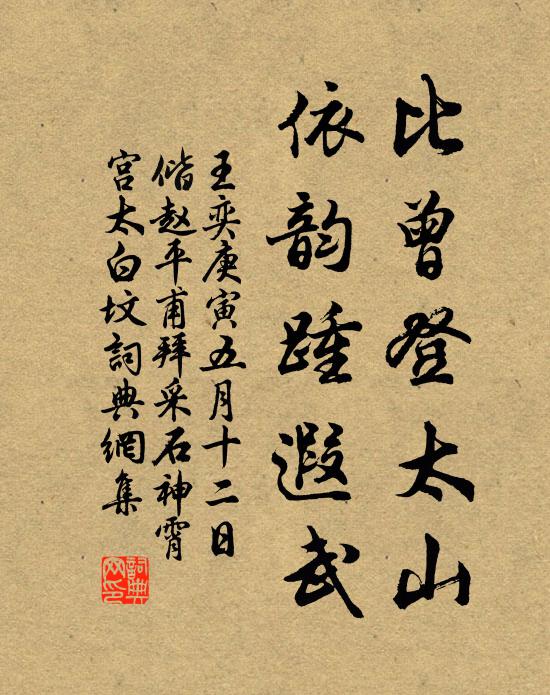 比曾登太山
依韵踵遐武
王奕庚寅五月十二日
偕赵平甫拜采石神霄
宫太白坟詞典網集
詞典网印